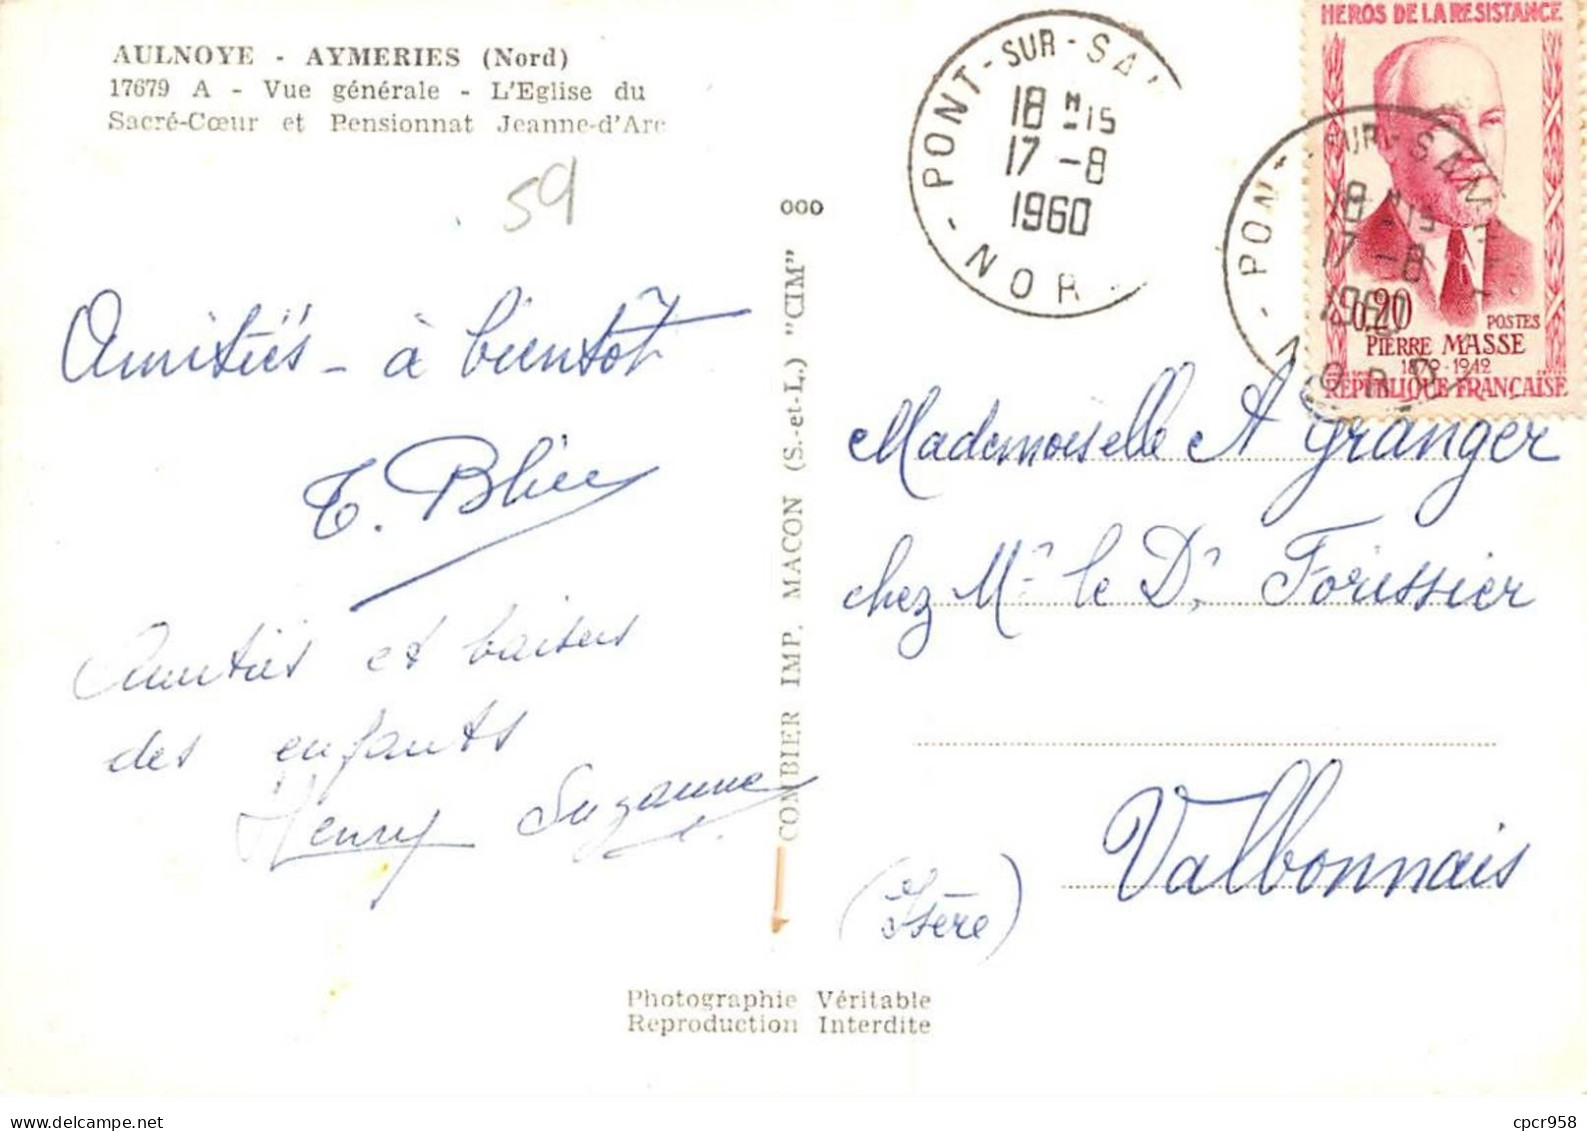 AULNOYE - AYMERIES (Nord)
17679 A - Vue générale - L'Eglise du
Sacré-Cœur et Pensionnat Jeanne-d'Arc
59
Amitiés - à bientôt
Amitiés et baisers
des enfants
Henry Suzanne
000
COMBIER IMP. MACON (S.-et-L.) "CIM"
PONT-SUR-SA
18 H 15
17 -8
1960
NOR
HEROS DE LA RESISTANCE
0,20
POSTES
PIERRE MASSE
1879-1942
REPUBLIQUE FRANÇAISE
PONT SUR-SAM
18 H 15
17 -8
1960
NORD
Mademoiselle A Granger
chez Mr le Dr Forissier
Valbonnais
(Isère)
Photographie Véritable
Reproduction Interdite
cpcr958